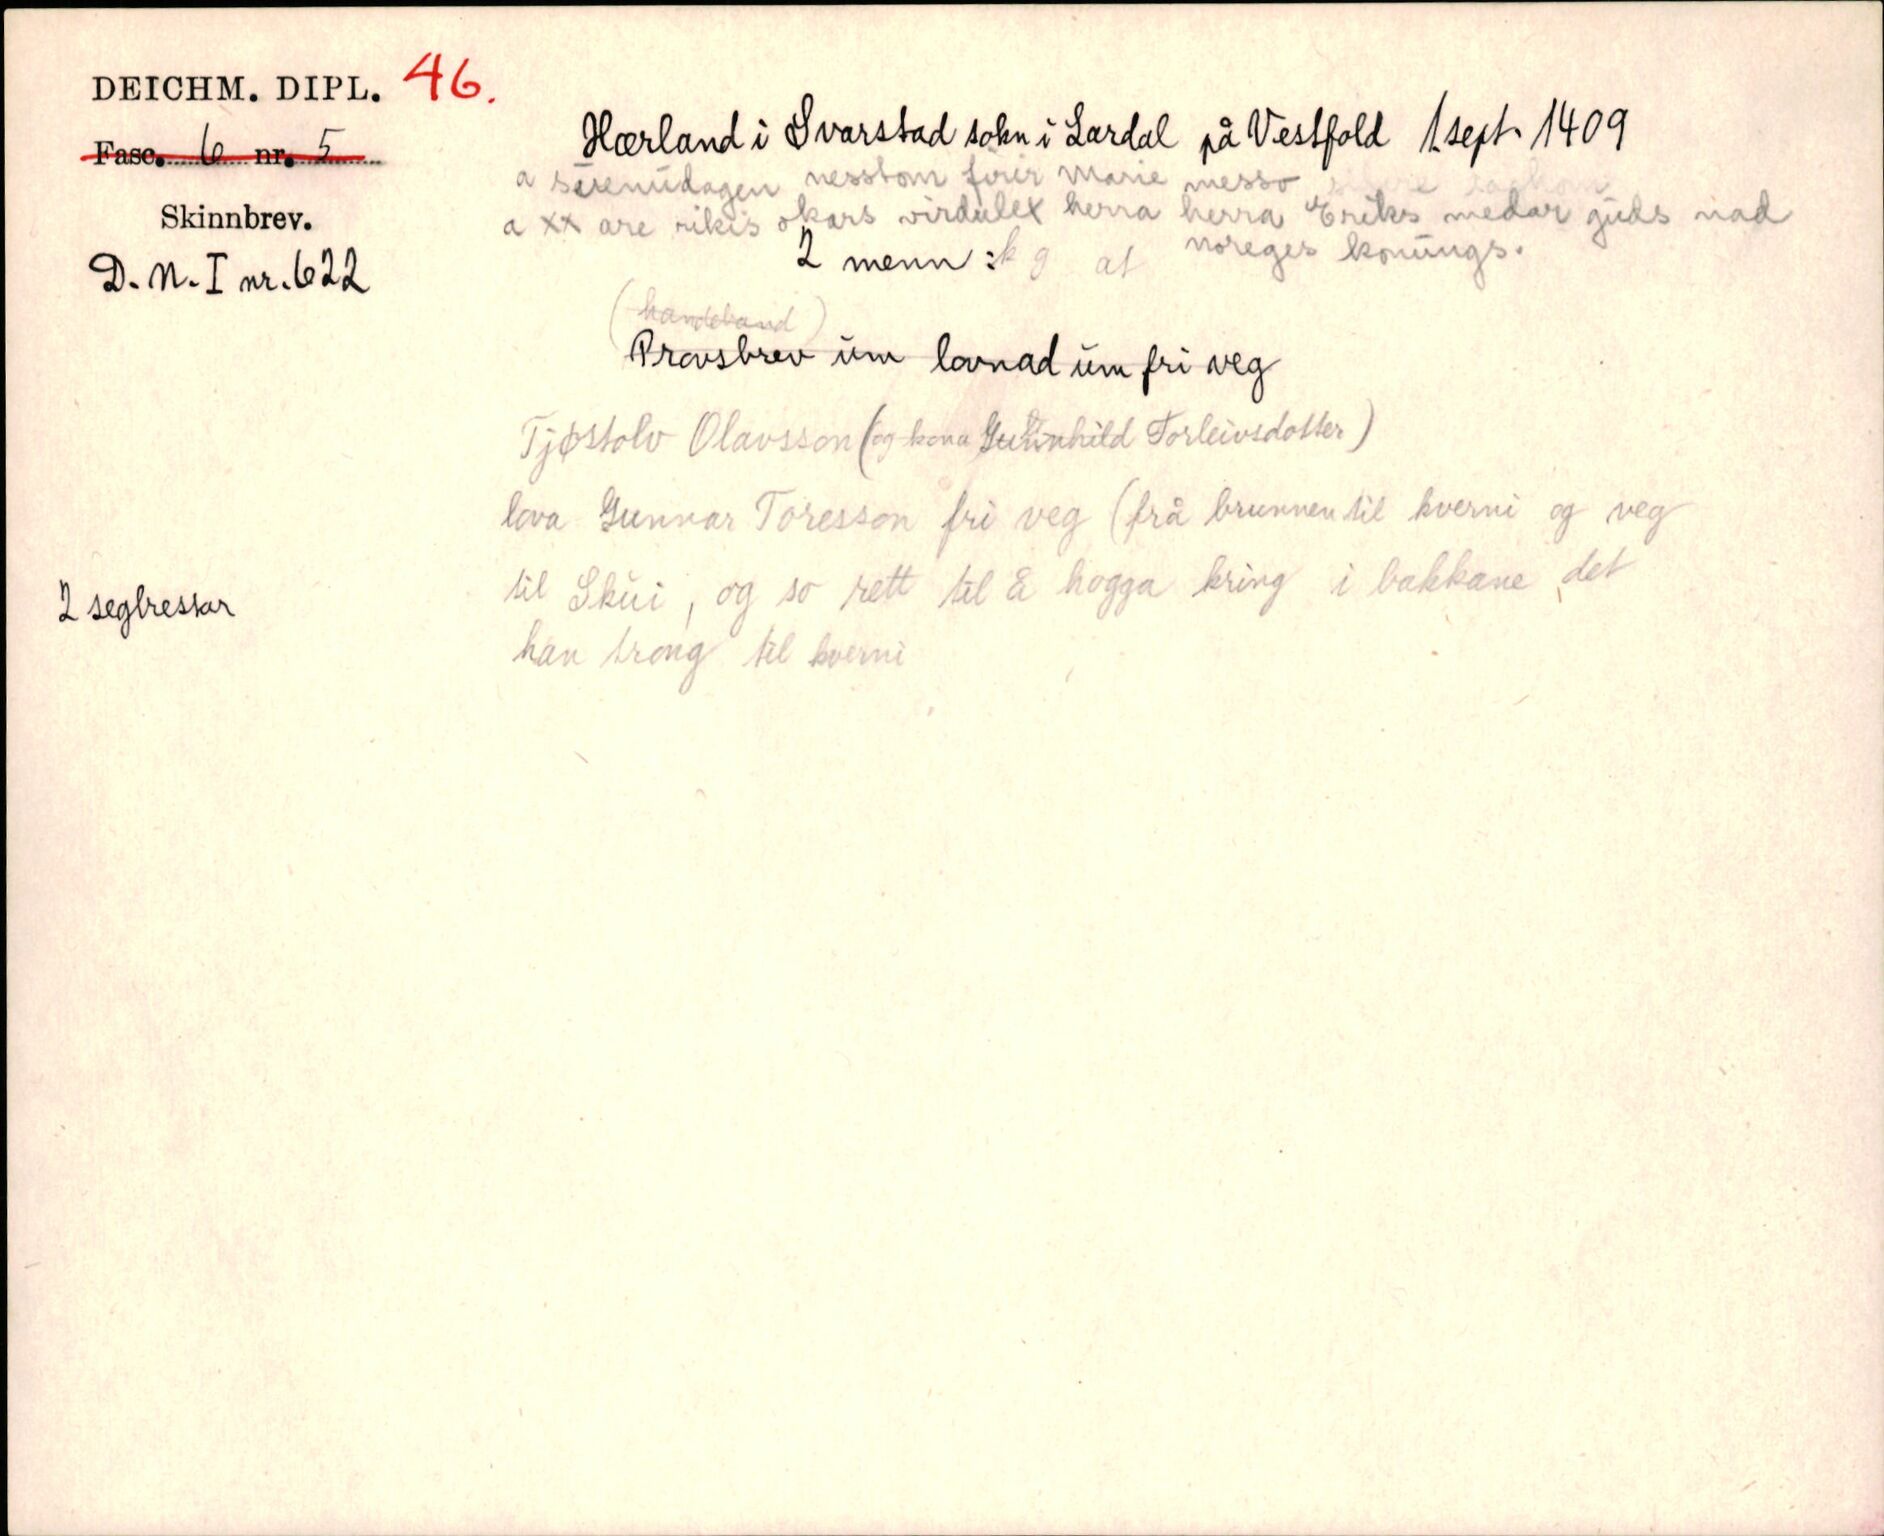 DEICHM. DIPL. 46.
Fasc. 6 nr. 5
Skinnbrev.
D. N. I nr. 622
2 seglrestar
Hærland i Svarstad sokn i Lardal på Vestfold 1. sept. 1409
a sunnudagen nesstom firir Marie messo
a xx are rikis okars virdulex herra herra Eriks medar guds nad
noreges konungs.
2 menn : k g at
(handeband)
Provsbrev um lovnad um fri veg
Tjøstolv Olavsson (og kona Gunnhild Torleivsdotter)
lova Gunnar Toresson fri veg (frå brunnen til kverni og veg
til Skui, og so rett til å hogga kring i bakkane det
han trong til kverni